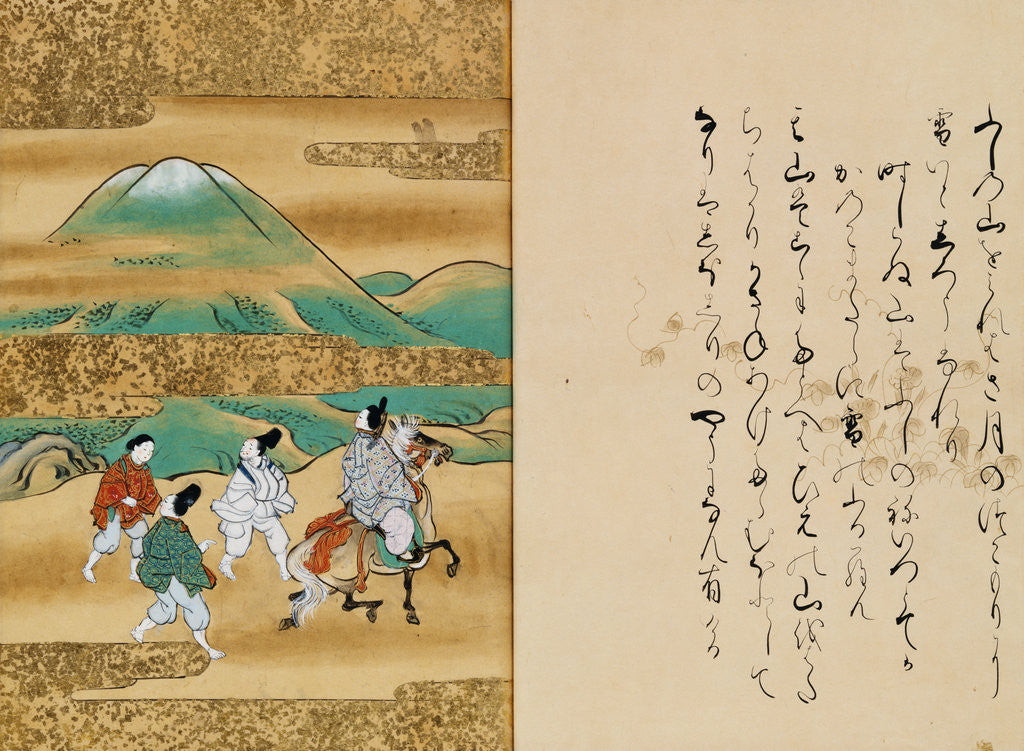 ふしの山をみれはさ月のつこもりに
雪いとしろうふれり
時しらぬ山はふしのねいつとてか
かのこまたらに雪のふるらん
其山はこゝにたとへはひえの山をはた
ちはかりかさねあけたらむほとして
なりはしほしりのやうになん有ける